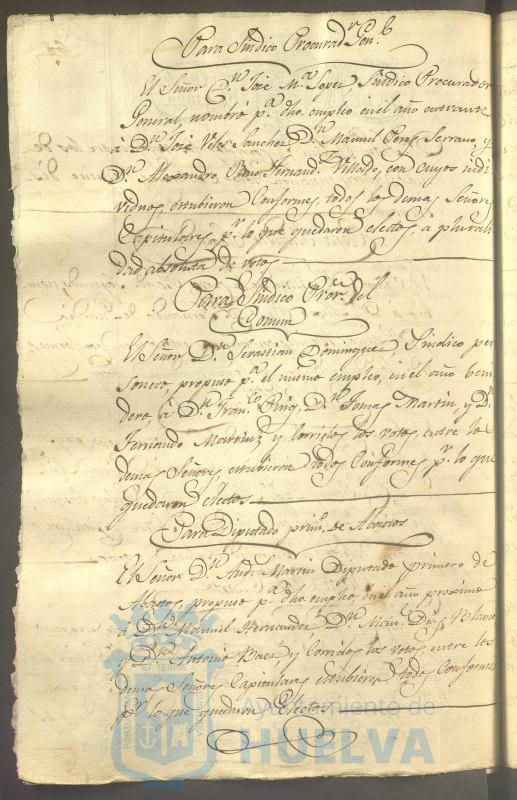 Para Síndico Procurad.r Gen.l
El Señor D.n José M.a Lopez Síndico Procurador
General, nombró p.a dho. empleo en el año entrante
á D.n José Velez Sanchez, D.n Manuel Perez Serrano, y
D.n Alexandro Hernand.z Villaldo, con cuyos indi
viduos, estubieron Conformes, todos los demas, Señores
Capitulares, p.r lo que quedaron electos, á plurali
dad absoluta de votos
Para Síndico Pror. del
Comun
El Señor D.n Sebastian Dominguez Sindico per
sonero, propuso p.a el mismo empleo, en el año beni
dero, á D.n Fran.co Puig, D.n Tomas Martin, y D.n
Fernando Martinz y corridos los votos, entre lo
demas Señores estubieron todos Conformes p.r lo que
quedaron electos
Para Diputado prim.o de Abastos
El Señor D.n And.s Martin Diputado primero de
Abastos, propuso p.a dho. empleo en el año proximo
á D.n Manuel Hernandez D.n Man.l Diaz
y D.n Antonio Baez, y corridos los votos, entre los
demas Señores Capitulares estubieron todos Conformes
p.r lo que quedaron Electos
Ayuntamiento de
HUELVA